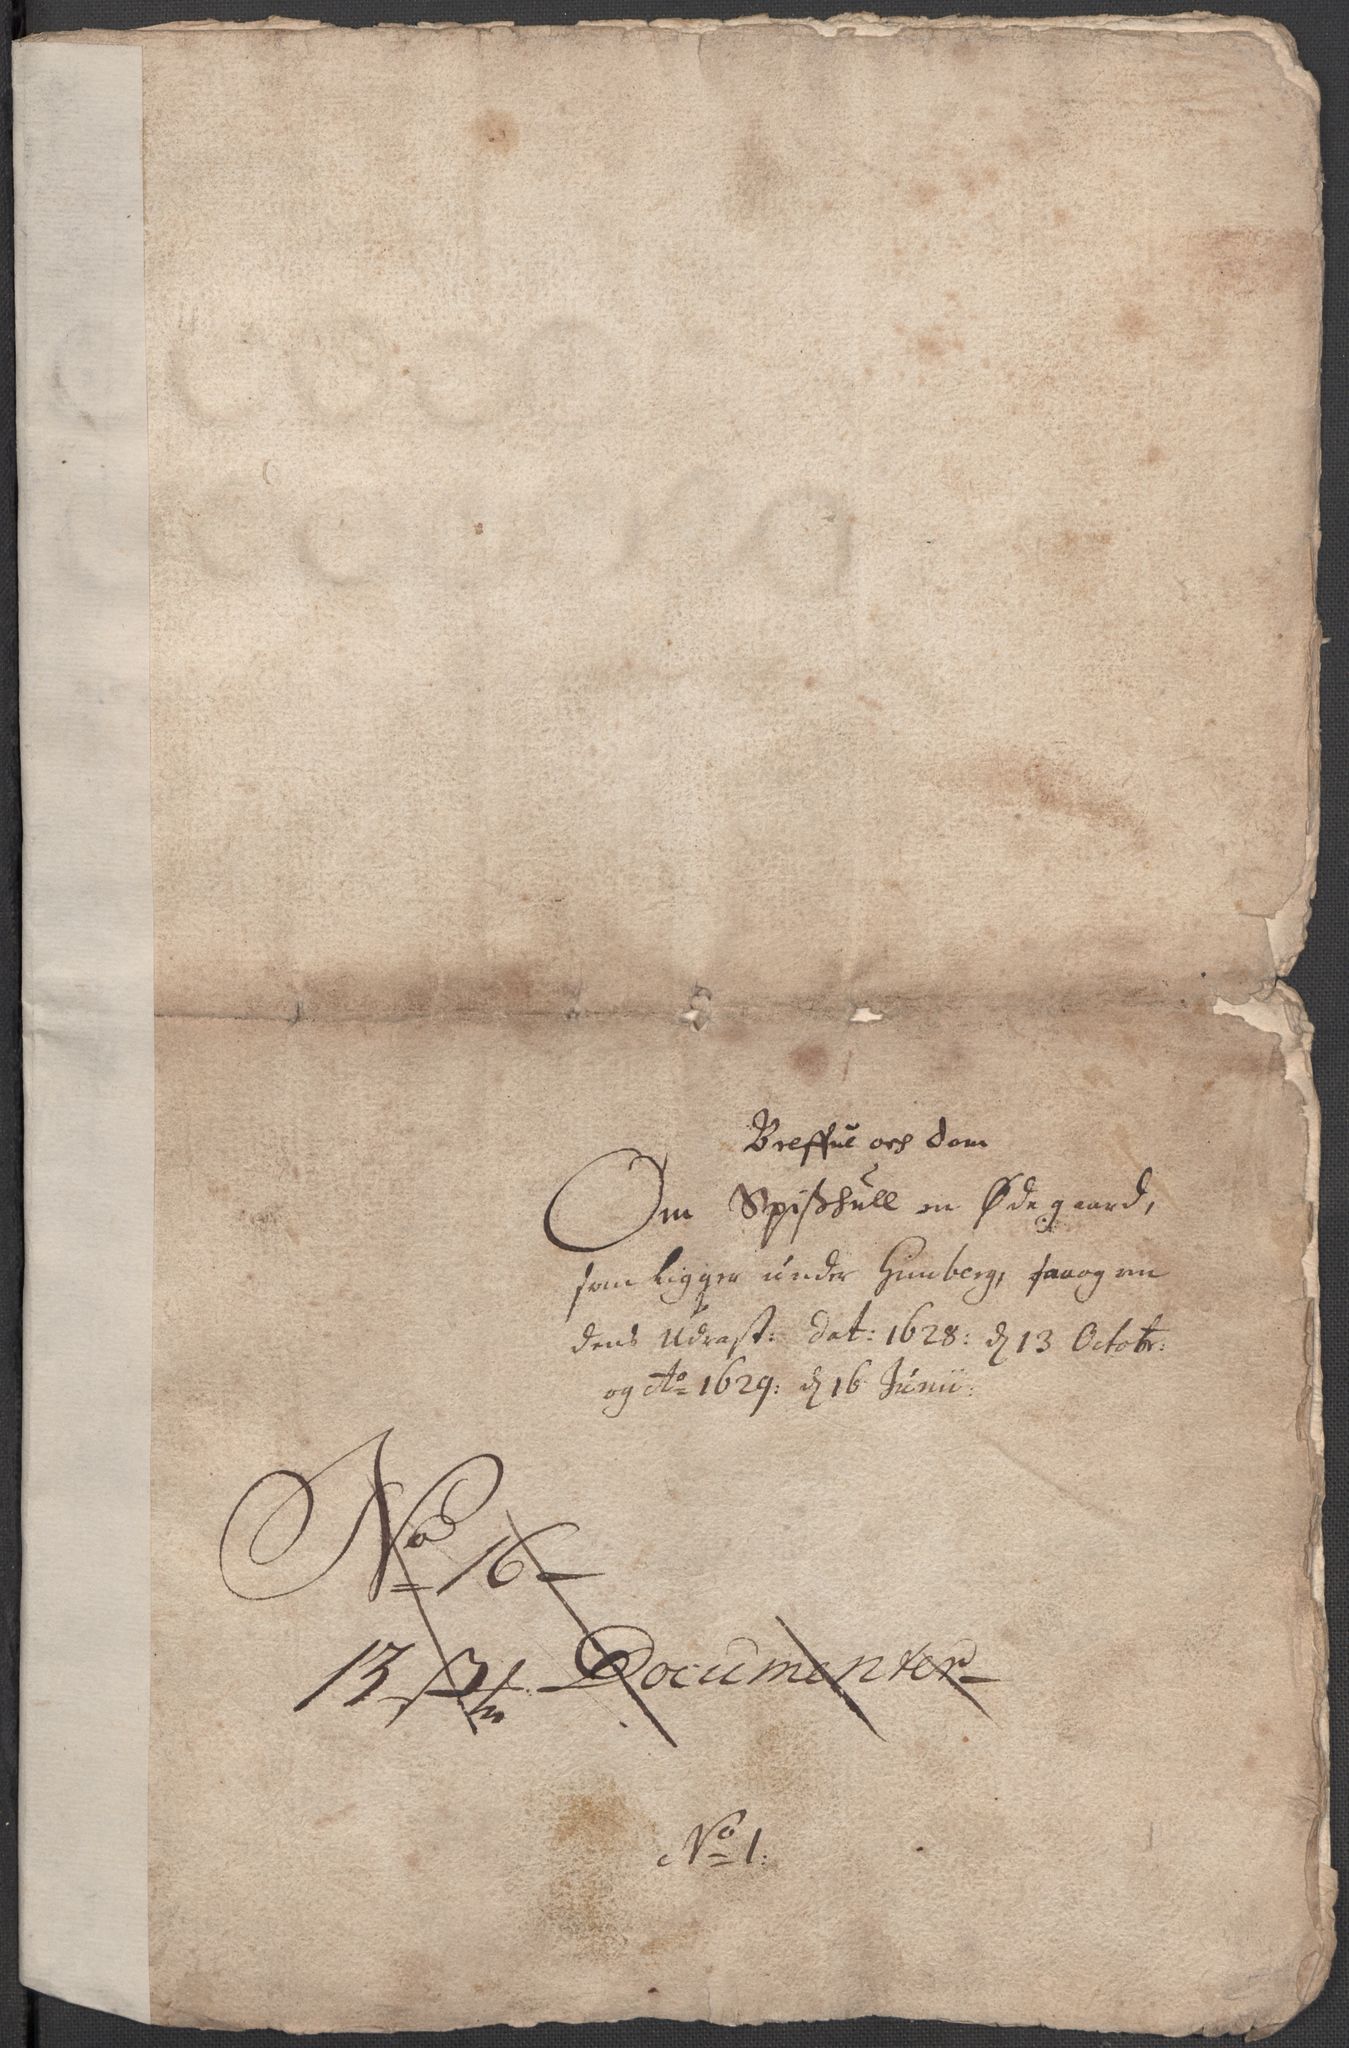 Breffue och dom
Om Spißhull en Ødegaard,
som ligger under Himberg, saa og om
dens Udrast: dat: 1628: d 13 Octobr:
og Ao 1629: d 16 Junii:
No 16
13 Documenter
No 1: